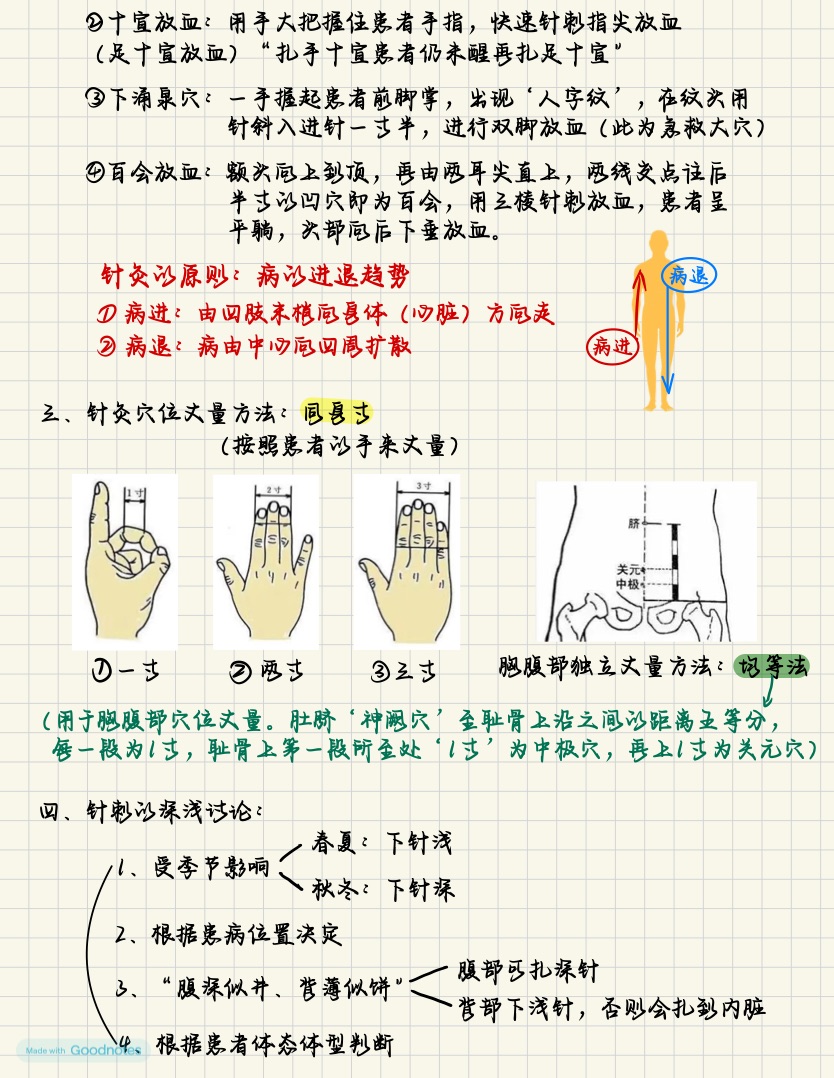 ②十宣放血：用手大把握住患者手指，快速针刺指尖放血
（足十宣放血）“扎手十宣患者仍未醒再扎足十宣”
③下涌泉穴：一手握起患者前脚掌，出现‘人字纹’，在纹头用
针斜入进针一寸半，进行双脚放血（此为急救大穴）
④百会放血：额头向上到顶，再由两耳尖直上，两线交点往后
半寸的凹穴即为百会，用三棱针刺放血，患者呈
平躺，头部向后下垂放血。
针灸的原则：病的进退趋势
①病进：由四肢末梢向身体（心脏）方向走
②病退：病由中心向四周扩散
病退
病进
三、针灸穴位丈量方法：同身寸
（按照患者的手来丈量）
1寸
2寸
3寸
脐
关元
中极
①一寸
②两寸
③三寸
胸腹部独立丈量方法：均等法
（用于胸腹部穴位丈量。肚脐‘神阙穴’至耻骨上沿之间的距离五等分，
每一段为1寸，耻骨上第一段所至处‘1寸’为中极穴，再上1寸为关元穴）
四、针刺的深浅讨论：
1、受季节影响
春夏：下针浅
秋冬：下针深
2、根据患病位置决定
3、“腹深似井、背薄似饼”
腹部可扎深针
背部下浅针，否则会扎到内脏
4、根据患者体态体型判断
Made with Goodnotes